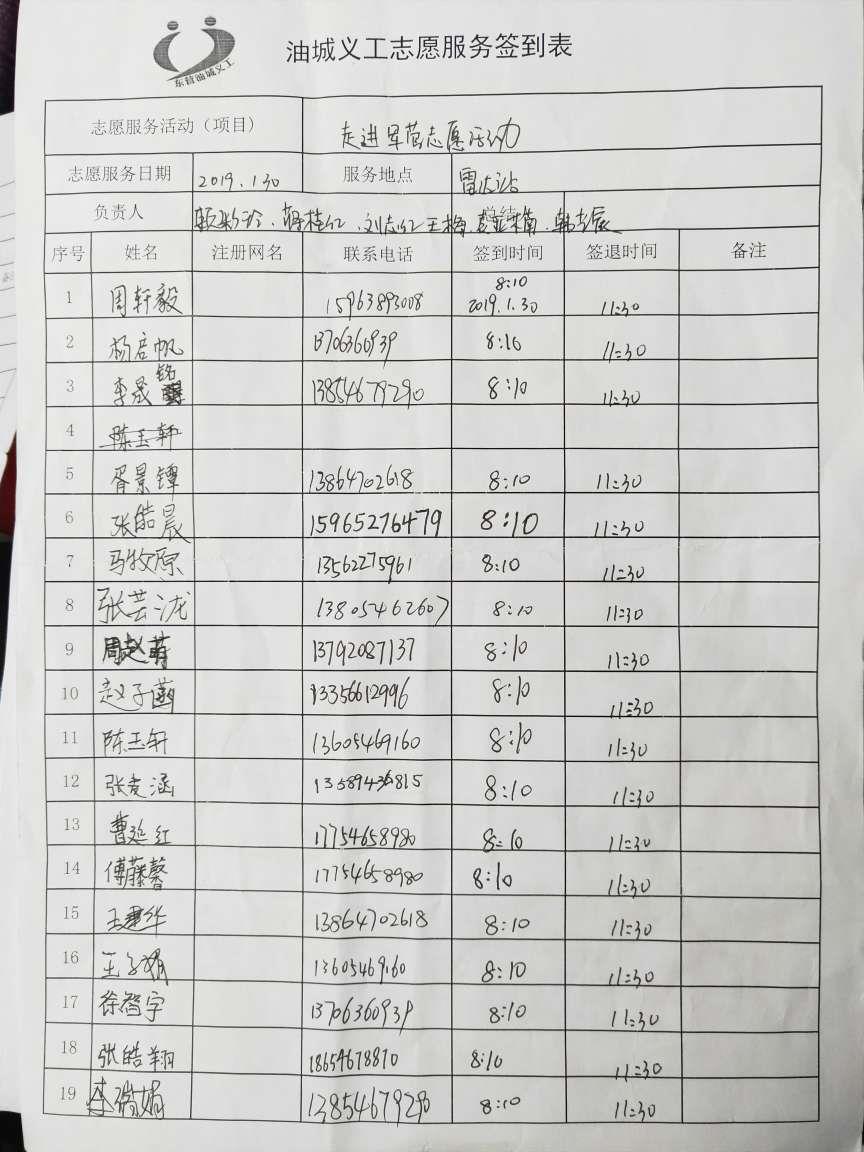 东营油城义工
油城义工志愿服务签到表
志愿服务活动（项目） 走进军营志愿活动
志愿服务日期 2019.1.30 服务地点 雷达站
负责人 刘志红 王梅
序号 姓名 注册网名 联系电话 签到时间 签退时间 备注
1 周轩毅 15963893008 8:10 2019.1.30 11:30
2 杨启帆 13706360939 8:10 11:30
3 李晟铭 13854679290 8:10 11:30
4 陈玉轩
5 胥景镡 13864702618 8:10 11:30
6 张皓晨 15965276479 8:10 11:30
7 马牧原 13562275961 8:10 11:30
8 张芸泷 13805462607 8:10 11:30
9 13792087137 8:10 11:30
10 赵子涵 13356612996 8:10 11:30
11 陈玉轩 13605469160 8:10 11:30
12 张麦涵 13589436815 8:10 11:30
13 曹延红 17754658980 8:10 11:30
14 傅藤馨 17754658980 8:10 11:30
15 王建华 13864702618 8:10 11:30
16 王子娟 13605469160 8:10 11:30
17 徐智宇 13706360939 8:10 11:30
18 张皓翔 18654678870 8:10 11:30
19 李瑞娟 13854679290 8:10 11:30